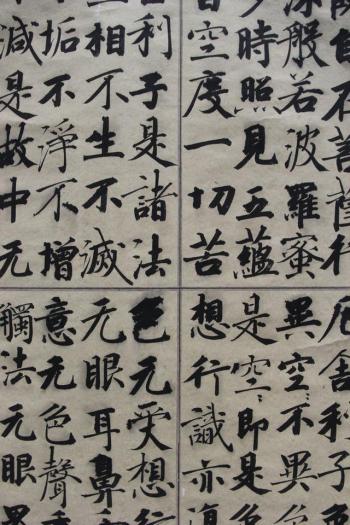 在菩薩行
深般若波羅蜜
多時照見五蘊
空度一切苦
厄舍利子色
異空不異色
是空〻即是色
想行識亦復
利子是諸法
相不生不滅
垢不淨不增
減是故中无
色无受想行
无眼耳鼻
意无色聲
觸法无眼界